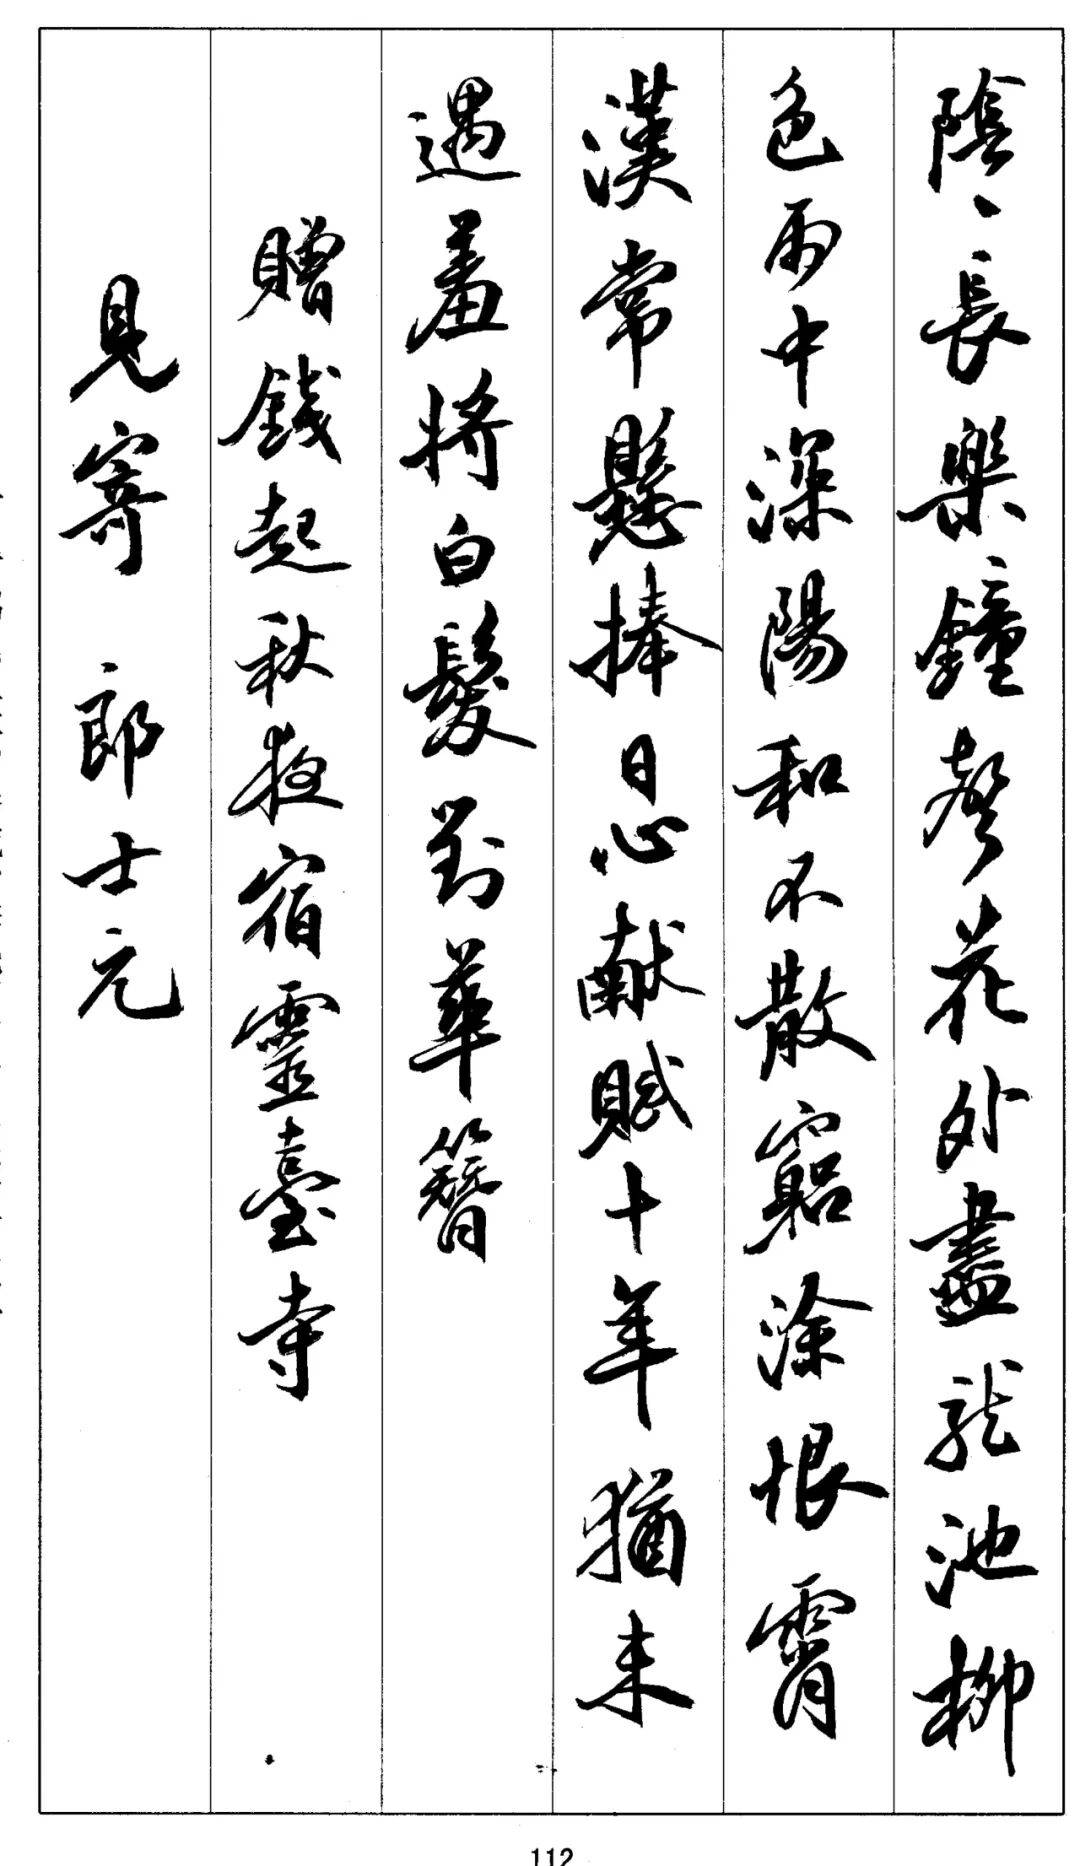 陰、長樂鐘聲花外盡龍池柳
色雨中深陽和不散窮途恨霄
漢常懸捧日心獻賦十年猶未
遇羞將白髮對華簪
贈錢起秋夜宿靈臺寺
見寄 郎士元
112